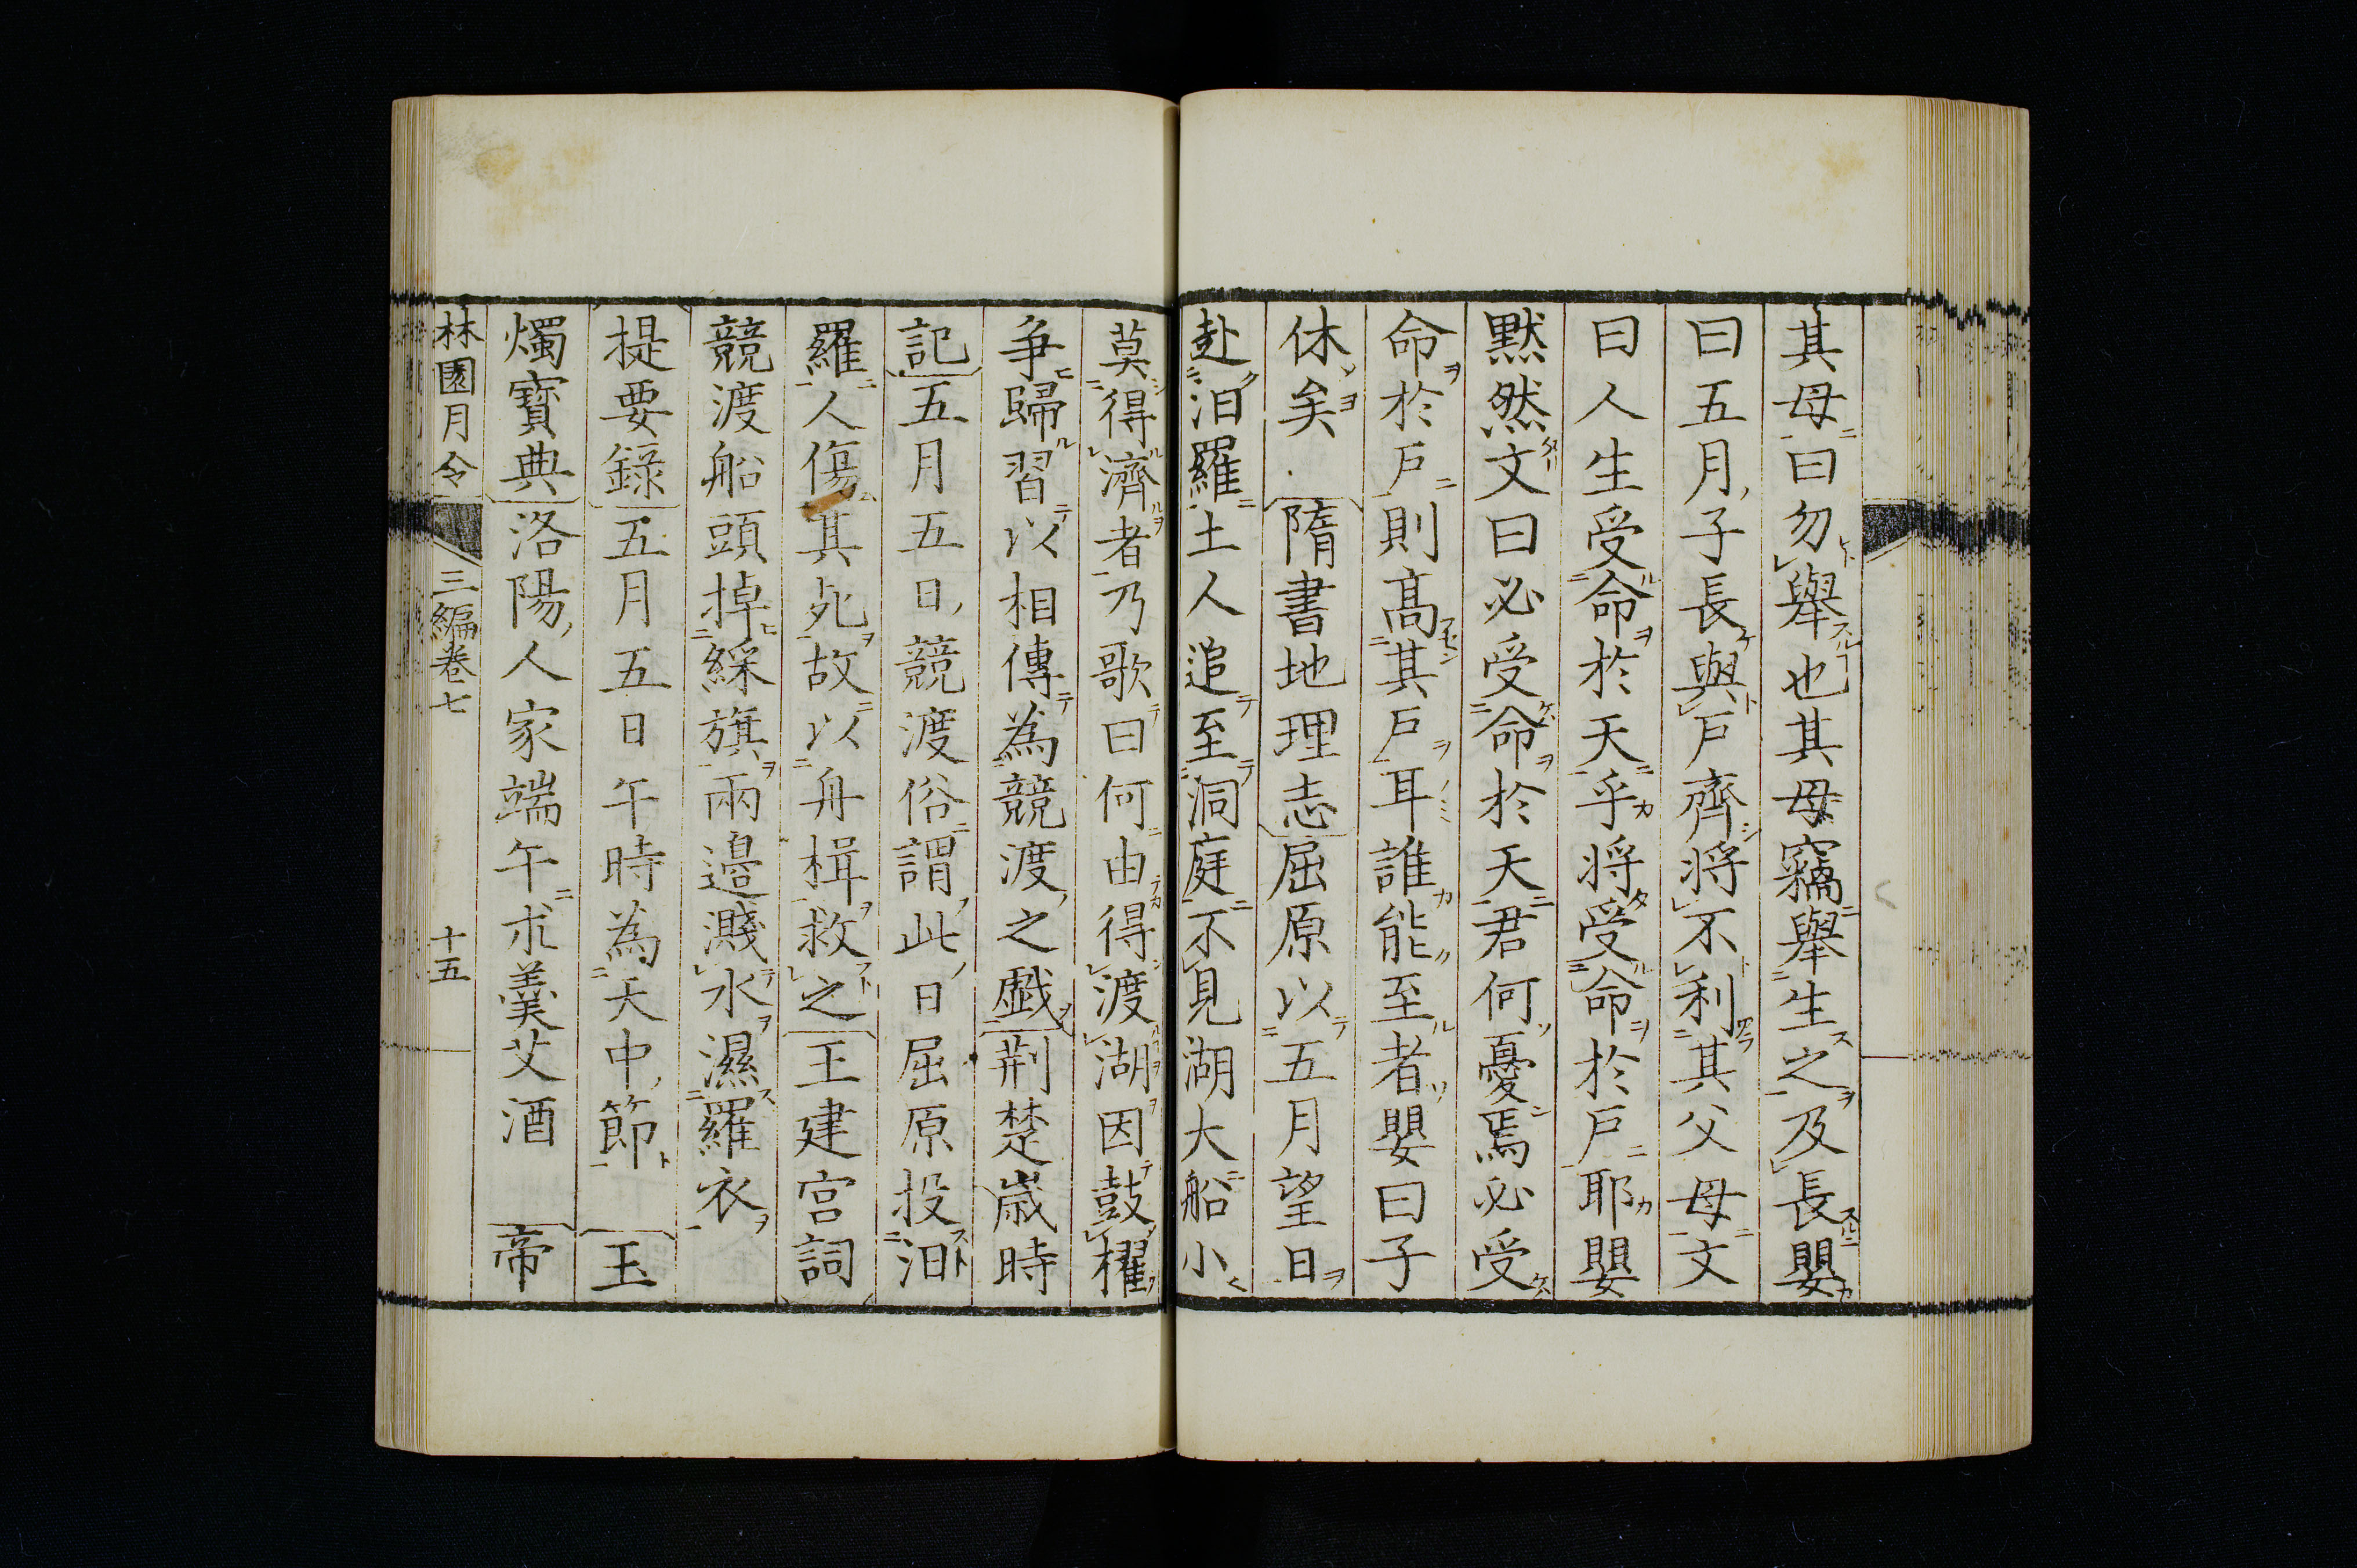 其母曰勿舉也其母竊舉生之及長嬰
曰五月子長與戸齊将不利其父母文
曰人生受命於天乎将受命於戸耶嬰
黙然文曰必受命於天君何憂焉必受
命於戸則髙其戸耳誰能至者嬰曰子
休矣隋書地理志屈原以五月望日
赴汨羅土人追至洞庭不見湖大船小
莫得濟者乃歌曰何由得渡湖因鼓櫂
争歸習以相傳為競渡之戯荊楚嵗時
記五月五日競渡俗謂此日屈原投汨
羅人傷其死故以舟楫救之王建宮詞
競渡船頭掉綵旗兩邉濺水濕羅衣
提要録五月五日午時為天中節玉
燭寶典洛陽人家端午朮羹艾酒帝
林園月令三編巻七十五